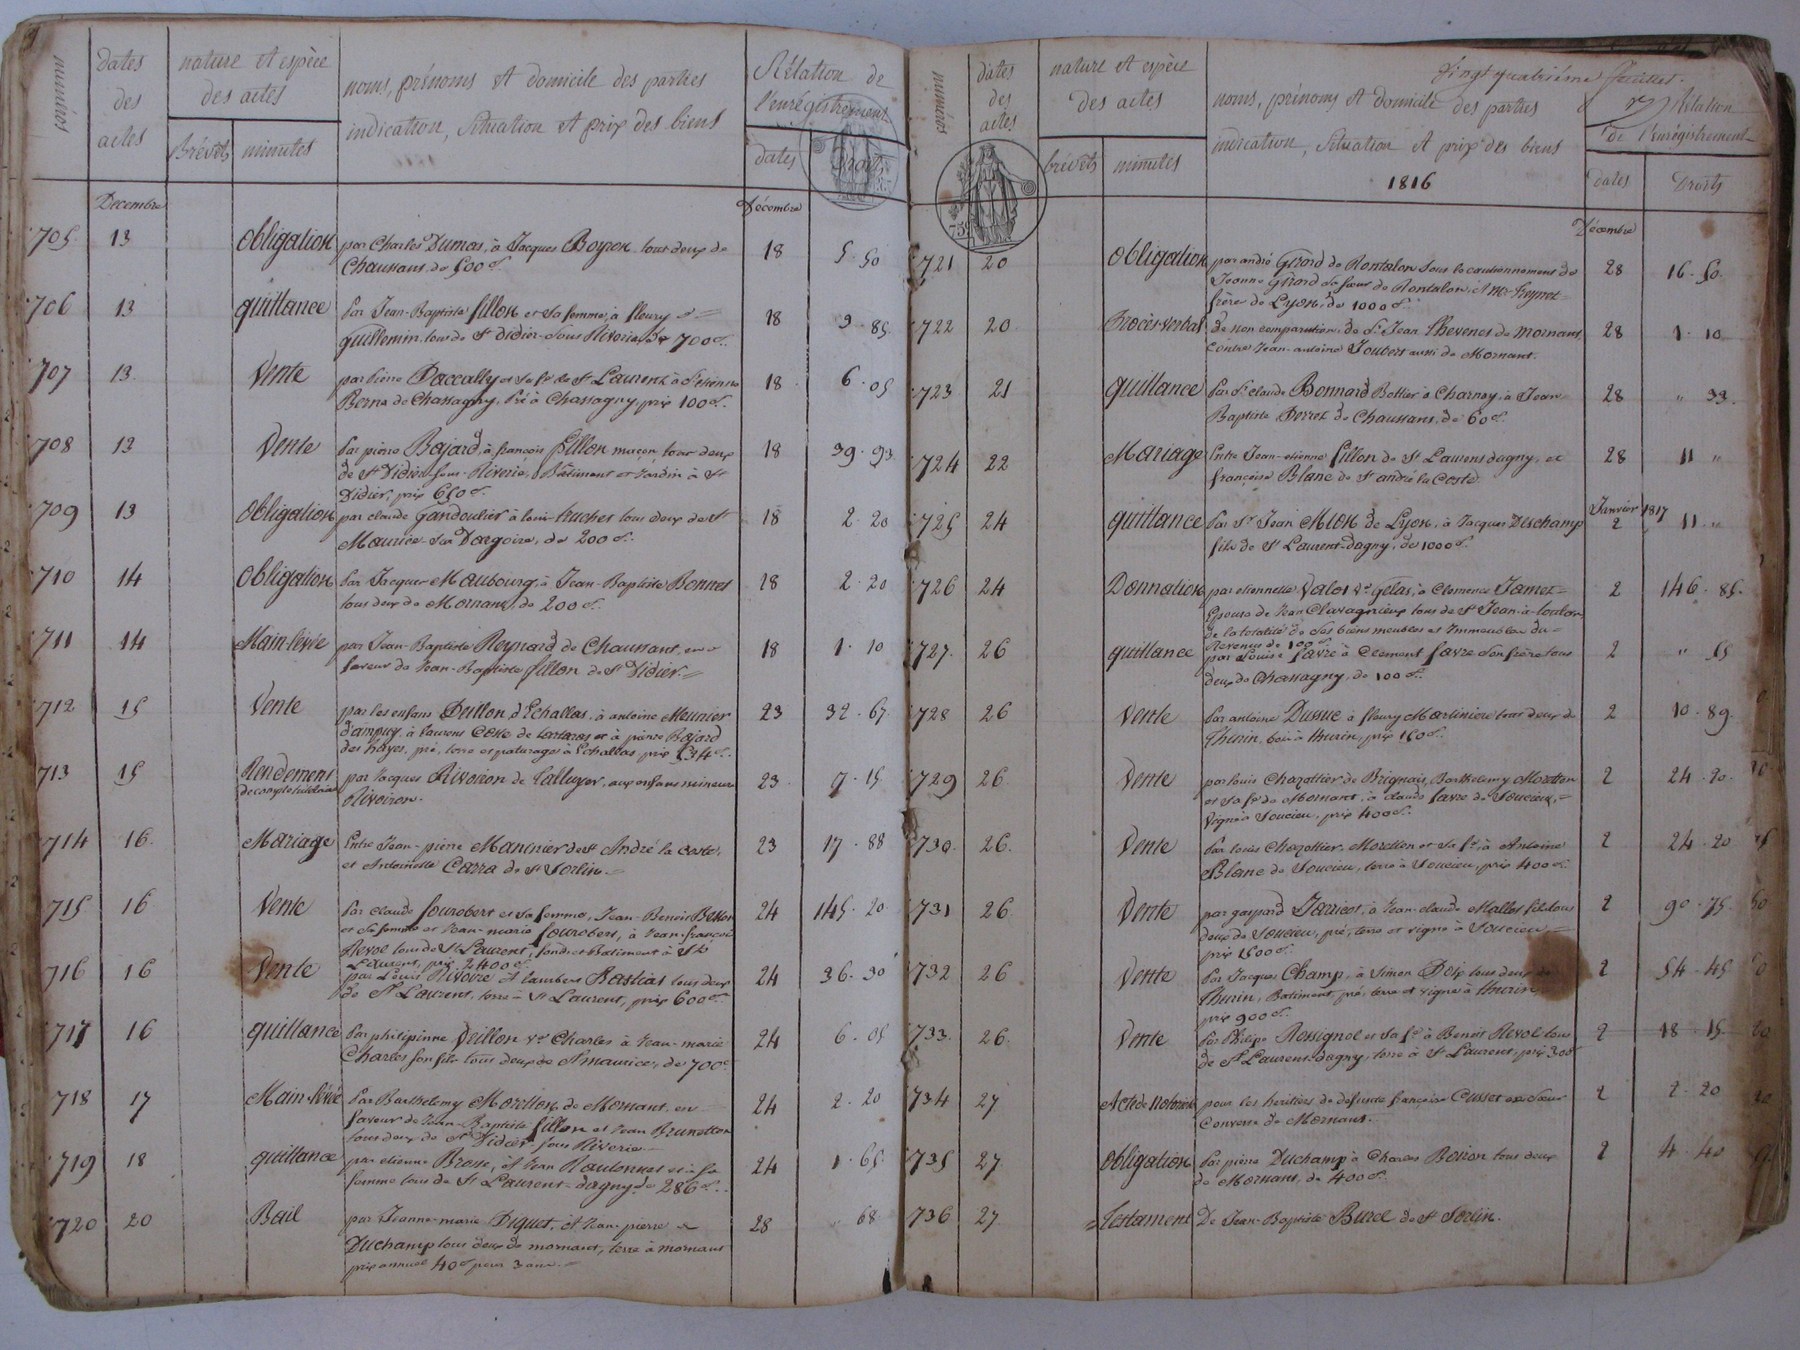 numéros
dates des actes
nature et espèce des actes
Brévets
minutes
noms, prénoms et domicile des parties
indication, situation et prix des biens
Rélation de l'enrégistrement
dates
Droits
Décembre
Décembre
705 13 obligation par Charles Dumas, à Jacques Boyron tous deux de 18 5 . 50
Chaussans, de 500 f.
706 13 quittance par Jean-Baptiste fillon et sa femme, à fleury 18 9 . 85
guillermin, tous de St Didier-sous Riverie, de 700 f.
707 13 Vente par pierre Daccally et sa fe de St Laurent, à Etienne 18 6 . 05
Berna de Chassagny, Pré à Chassagny, prix 100 f.
708 13 Vente par pierre Bajard, à françois fillon maçon, tous deux 18 39 . 93
de St Didier sous Riverie, Bâtiment et Jardin à St
Didier, prix 650 f.
709 13 obligation par claude Gandoulier à louis Truchet tous deux de St 18 2 . 20
Maurice-sur Dargoire, de 200 f.
710 14 obligation par Jacques Maubourg, à Jean-Baptiste Bonnet 18 2 . 20
tous deux de Mornant, de 200 f.
711 14 Main-lévée par Jean-Baptiste Reynard de Chaussant, en 18 1 . 10
faveur de Jean-Baptiste fillon de St Didier.
712 15 Vente par les enfans Peillon d'Echallas, à antoine Meunier 23 32 . 67
d'ampuy, à laurent Coste de tartaras et à pierre Bajard
des hayes, pré, terre et paturage à Echallas, prix 534 f.
713 15 Rendement par Jacques Rivoiron de Talluyer, aux enfans mineurs 23 9 . 15
de compte tutelaire Rivoiron.
714 16 Mariage Entre Jean-pierre Maninier de St André la coste, 23 17 . 88
et Antoinette Carra de St Sorlin.
715 16 Vente par claude fourobert et sa femme, Jean-Benoit Besson 24 145 . 20
et sa femme et Jean-marie fourobert, à Jean-françois
Revol tous de St Laurent, fonds et Batiment à St
Laurent, prix 2400 f.
716 16 Vente par Louis Rivoire et lambert Bastias tous deux 24 36 . 30
de St Laurent, terre à St Laurent, prix 600 f.
717 16 quittance par philipinne Peillon ve Charles à Jean-marie 24 6 . 05
Charles son fils tous deux de St maurice, de 700 f.
718 17 Main-lévée par Barthelemy Morellon de Mornant, en 24 2 . 20
faveur de Jean-Baptiste fillon et Jean Brunetton
tous deux de St Didier sous Riverie
719 18 quittance par etienne Brosse, à Jean Raulonnet et sa 24 1 . 65
femme tous de St Laurent-dagny de 286 f.
720 20 Bail par Jeanne-marie Piguet, à Jean-pierre 28 " 68
Duchamp tous deux de mornant, terre à mornant
prix annuel 40 f pour 3 ans.
numéros
dates des actes
nature et espèce des actes
brévets
minutes
Vingt quatrième feuillet.
noms, prénoms et domicile des parties
indication, situation et prix des biens
1816
Rélation de l'enrégistrement
dates
Droits
Décembre
721 20 obligation par andré Girard de Rontalon sous le cautionnement de 28 16 . 50
Jeanne Girard sa sœur de Rontalon, à Mr
frère de Lyon, de 1000 f.
722 20 Procès-verbal de non comparution de Sr Jean Thevenet de mornant, 28 1 . 10
contre Jean-antoine Joubert aussi de Mornant.
723 21 quittance par Sr claude Bonnard Bottier à Charnay, à Jean 28 " 33
Baptiste Perret de Chaussans, de 60 f.
724 22 Mariage Entre Jean-etienne fillon de St Laurent dagny, et 28 11 "
françoise Blanc de St andré la Coste
Janvier 1817
725 24 quittance par Sr Jean Mion de Lyon, à Jacques Duchamp 2 11 "
fils de St Laurent-dagny, de 1000 f.
726 24 Donnation par etiennette Valot ve Gelas, à Clemence Jamet 2 146 . 85
Epouse de Jean Clavagnieux tous de St Jean-à-toulas
de la totalité de ses biens meubles et Immeubles du
Revenu de 100 f.
727 26 quittance par Louise favre à Clement favre son frère tous 2 " 55
deux de Chassagny, de 100 f.
728 26 Vente par antoine Dussuc à fleury Martinière tous deux de 2 10 . 89
Thurin, bois à thurin, prix 180 f.
729 26 Vente par louis Chazottier de Brignais, Barthelemy Morellon 2 24 . 20
et sa fe de Mornant, à claude favre de Soucieu,
Vigne à Soucieu, prix 400 f.
730 26 Vente par louis Chazottier, Morellon et sa fe, à Antoine 2 24 . 20
Blanc de Soucieu, terre à Soucieu, prix 400 f.
731 26 Vente par gaspard Jarricot, à Jean-claude Mallet fils tous 2 90 . 75
deux de Soucieu, pré, terre et vigne à Soucieu
prix 1500 f.
732 26 Vente par Jacques Champ, à Simon Poix tous deux de 2 54 . 45
Thurin, Batiment, pré, terre et vigne à thurin
prix 900 f.
733 26 Vente par Philipe Rossignol et sa fe à Benoit Revol tous 2 18 . 15
de St Laurent-dagny, terre à St Laurent, prix 300 f
734 27 Acte de Notoriété pour les heritiers de defunte françoise Cusset sœur 2 2 . 20
Converse de Mornant.
735 27 obligation par pierre Duchamp à Charles Boiron tous deux 2 4 . 40
de Mornant, de 400 f.
736 27 Testament De Jean-Baptiste Burel de St Sorlin.